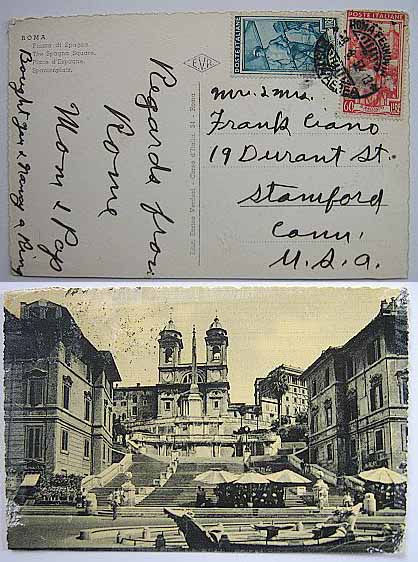 ROMA
Piazza di Spagna
The Spagna Square
Place d'Espagne
Spanienplatz
Regards from
Rome
Mom & Pap
Bought you & Nancy a Ring
EVR
Ediz. Enrico Verdesi - Corso d'Italia, 34 - Roma
POSTE ITALIANE
POSTE ITALIANE
60 LIRE
Mr. & Mrs.
Frank Ciano
19 Durant St.
Stamford
Conn.
U.S.A.